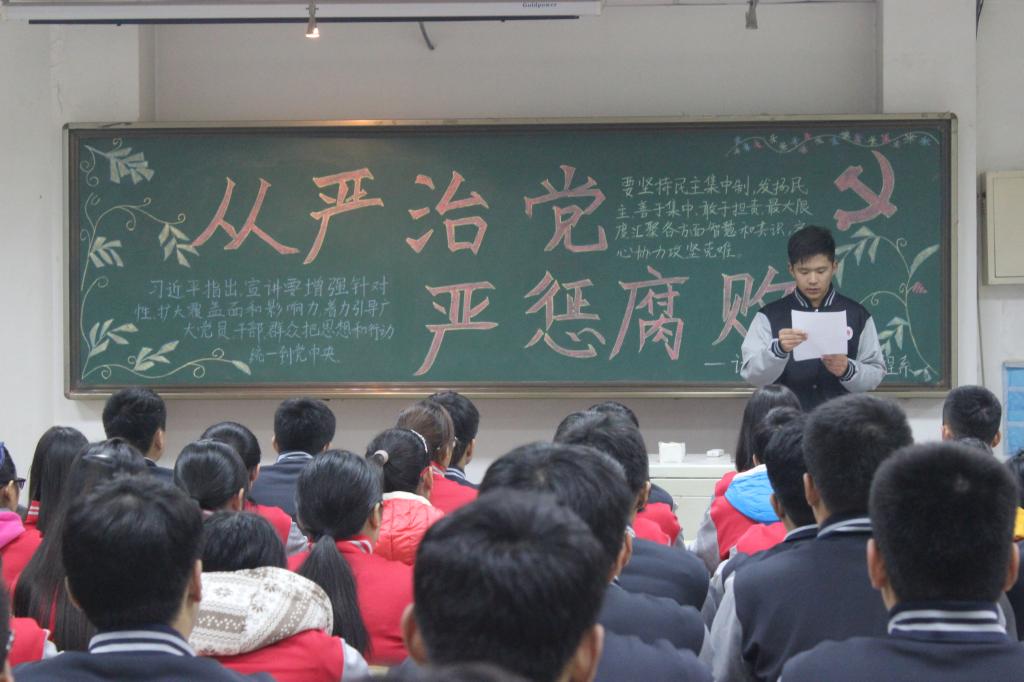 Goldpower
从严治党
要坚持民主集中制,发扬民
主,善于集中,敢于担责,最大限
度汇聚各方面智慧和共识,齐
心协力攻坚克难。
习近平指出,宣讲要增强针对
性,扩大覆盖面和影响力,着力引导广
大党员干部,群众把思想和行动
统一到党中央
严惩腐败
系